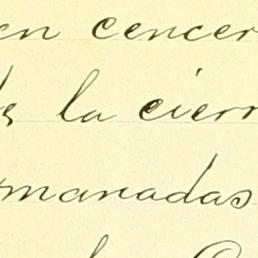 en cencer
s la cierr
manadas